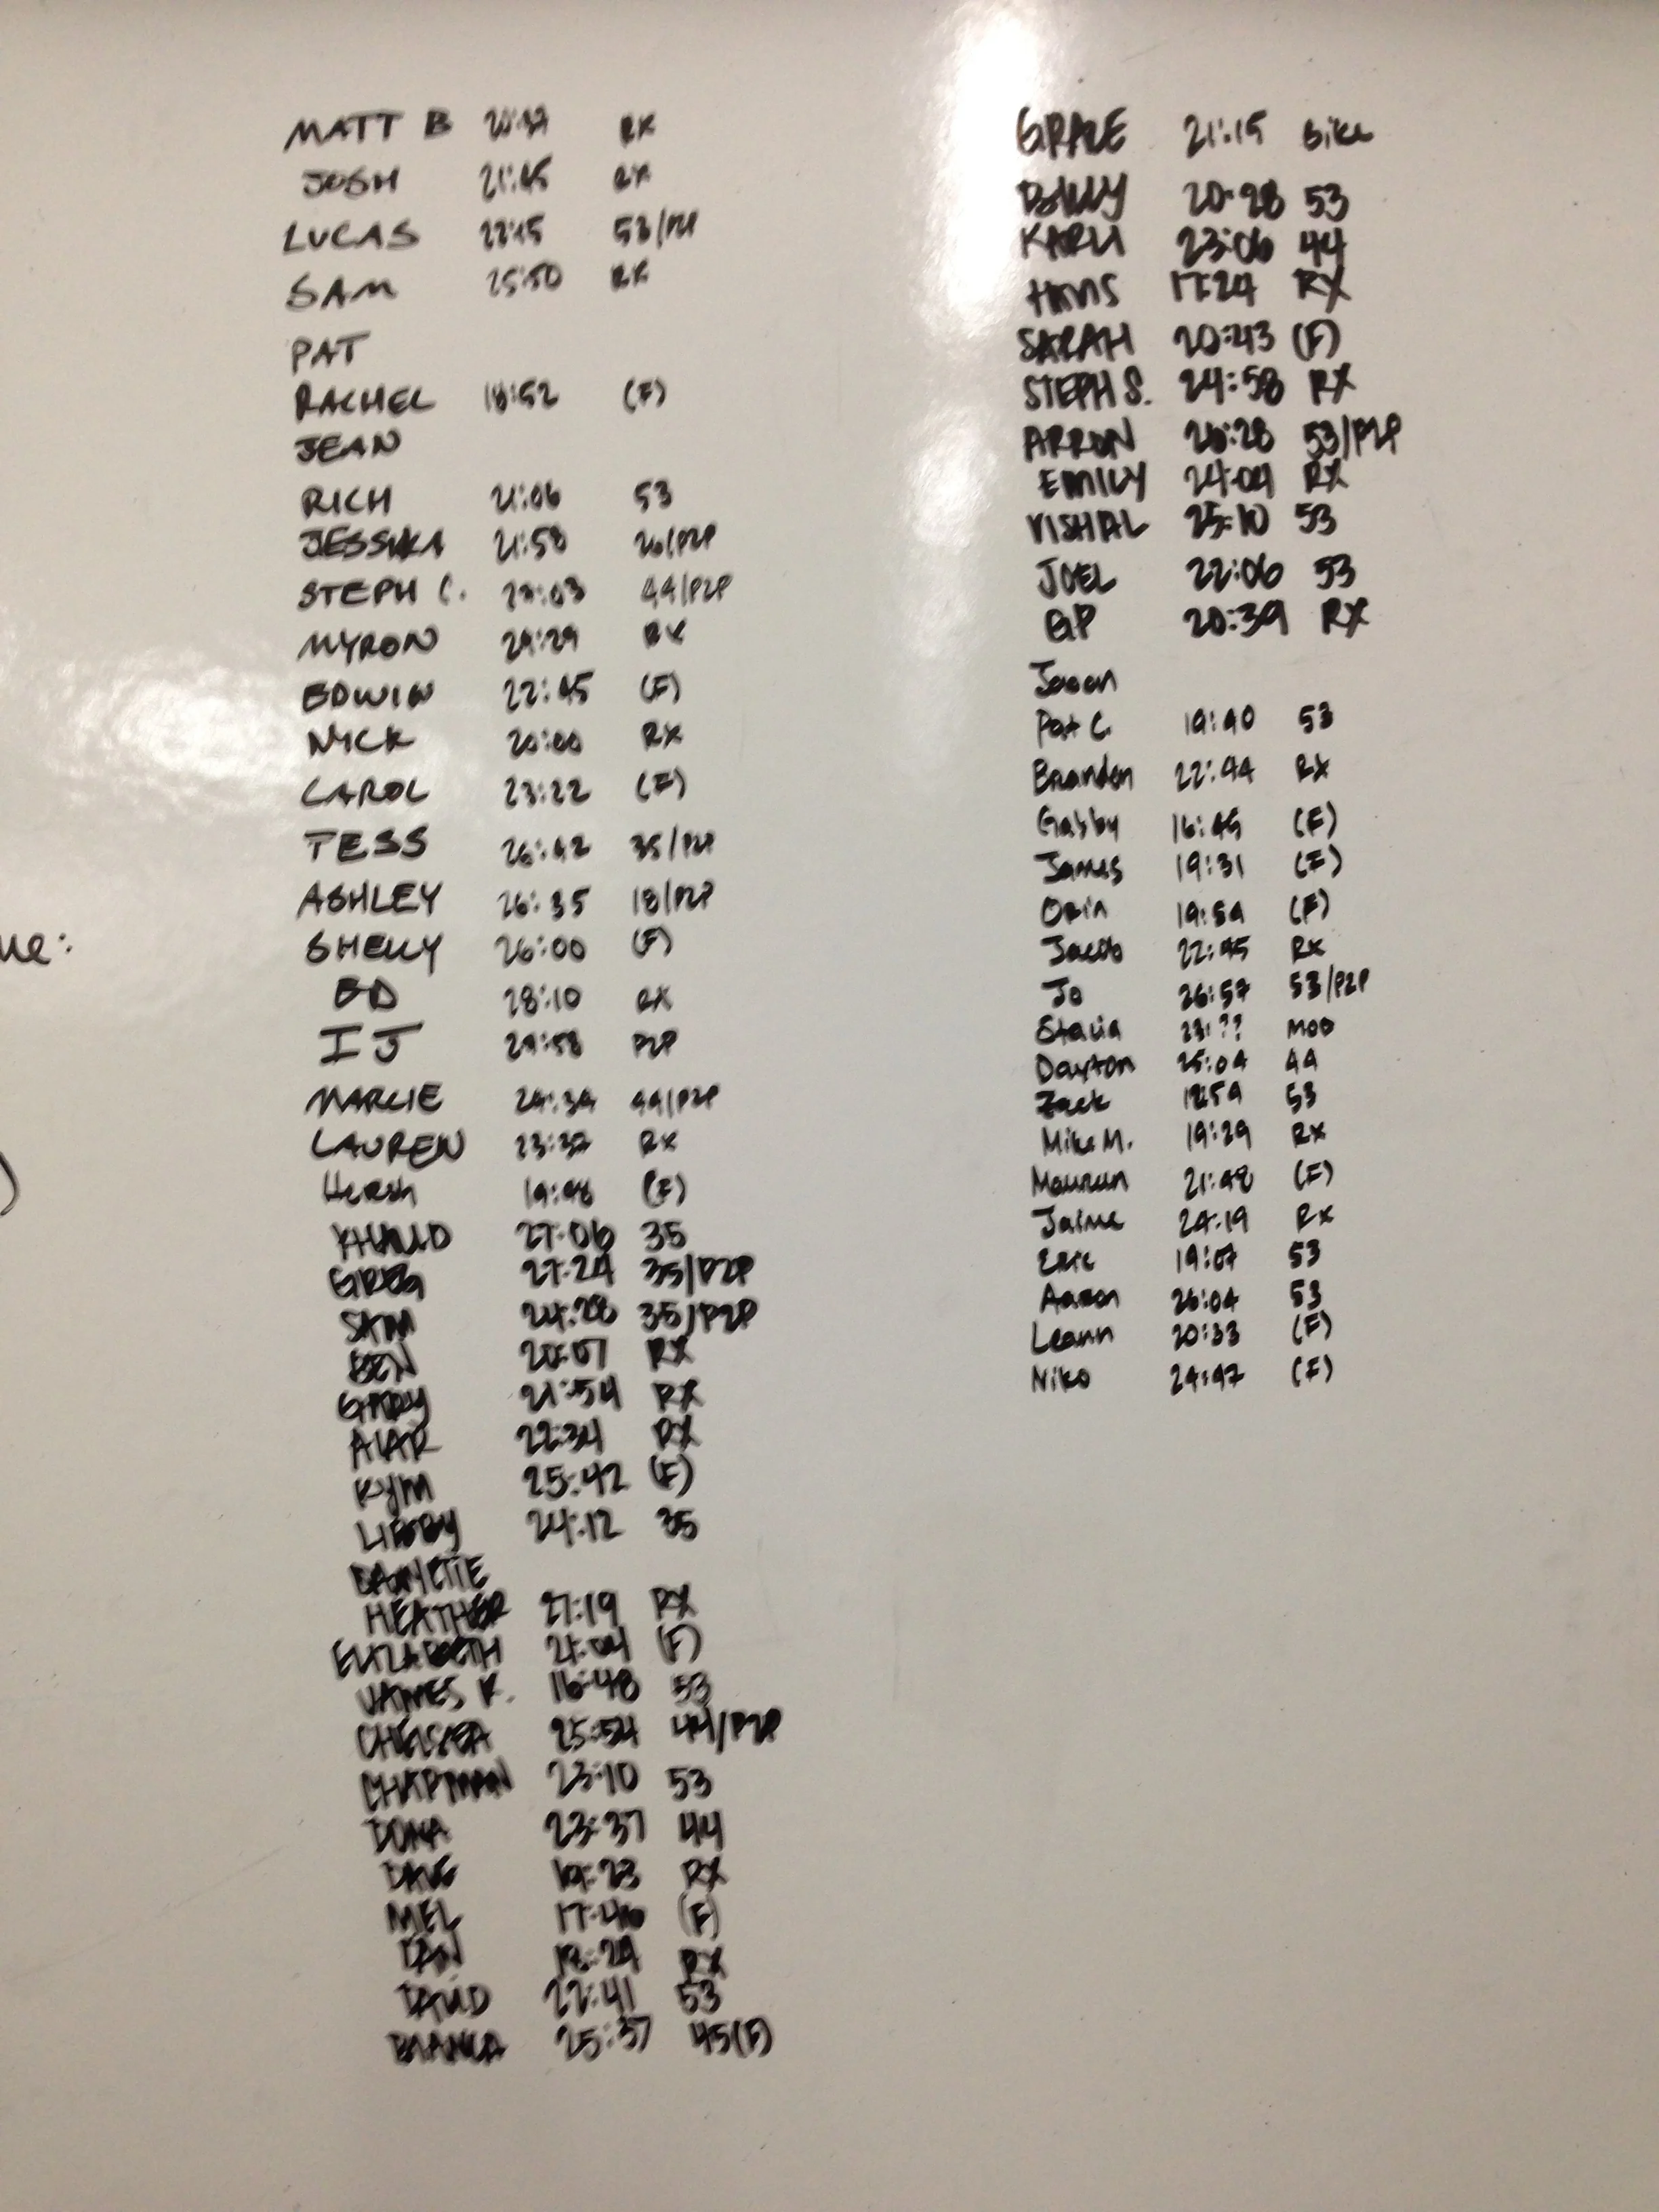 MATT B RX
JOSH 21:45 RX
LUCAS 22:15 53/P2P
SAM 25:50 RX
PAT
RACHEL 18:52 (F)
JEAN
RICH 21:06 53
JESSIKA 21:58 26/P2P
STEPH C. 44/P2P
MYRON 24:29 RX
EDWIN 22:45 (F)
NICK 20:00 RX
CAROL 23:22 (F)
TESS 26:42 35/P2P
ASHLEY 26:35 18/P2P
SHELLY 26:00 (F)
ED 28:10 RX
IJ P2P
MARCIE 24:34 44/P2P
LAUREN 23:37 RX
Hersh 19:48 (F)
27:06 35
GREG 27:24 35/P2P
SAM 24:28 35/P2P
BEN 20:07 RX
GARY 21:54 RX
22:34 RX
KYM 25:42 (F)
LIBBY 24:12 35
HEATHER 27:19 RX
ELIZABETH (F)
JAMES K. 16:48 53
CHELSEA 25:54 44/P2P
CHAPMAN 23:10 53
DONA 23:37 44
DAVE 19:23 RX
MEL 17:46 (F)
18:29 RX
DAVID 22:41 53
BIANCA 25:37 45(F)
ue:
)
GRACE 21:15 Bike
20:28 53
KARLI 23:06 44
17:24 RX
SARAH 20:43 (F)
STEPH S. 24:58 RX
ARRON 26:28 53/P2P
EMILY 24:04 RX
VISHAL 25:10 53
JOEL 22:06 53
GP 20:39 RX
Jason
Pat C 19:40 53
Branden 22:44 RX
Gabby 16:45 (F)
James 19:31 (F)
Orin 19:54 (F)
Jacob 22:45 Rx
Jo 26:57 53/P2P
Stacia 23:?? MOD
Dayton 25:04 44
Zack 18:59 53
Mike M. 19:29 Rx
Maureen 21:48 (F)
Jaime 24:19 Rx
Eric 19:07 53
Aaron 26:04 53
Leann 20:33 (F)
Niko 24:47 (F)